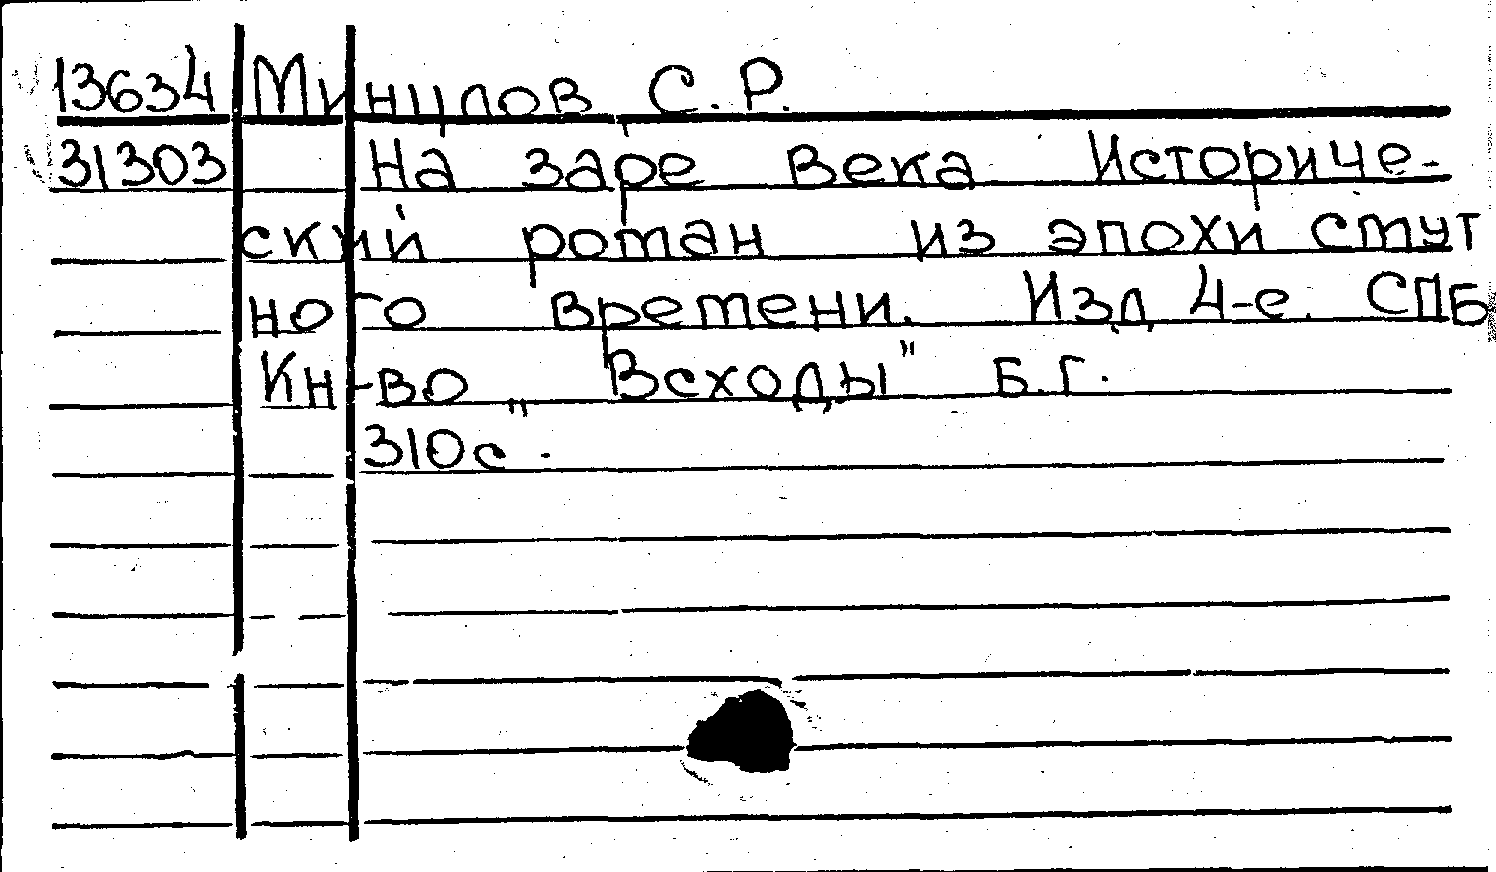 13634 Минцлов С.Р.
31303 На заре века Историче-
ский роман из эпохи смут
ного времени. Изд 4-е. СПБ
Кн-во „Всходы" Б.Г.
310с.